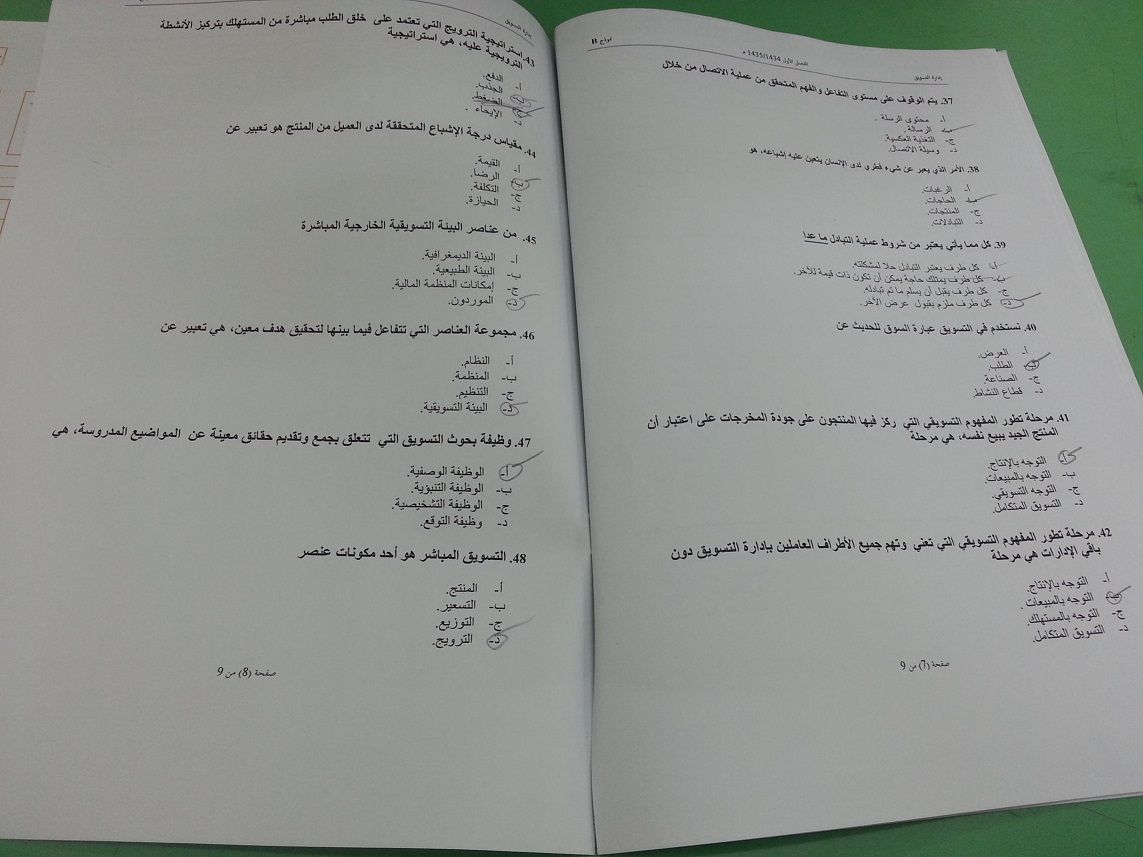 إدارة التسويق
الفصل الأول 1435/1434 هـ
نموذج B
37. يتم الوقوف على مستوى التفاعل والفهم المتحقق من عملية الاتصال من خلال
أ- محتوى الرسالة .
ب- الرسالة.
ج- التغذية العكسية.
د- وسيلة الاتصال.
38. الأمر الذي يعبر عن شيء فطري لدى الانسان يتعين عليه إشباعه، هو
أ- الرغبات.
ب- الحاجات.
ج- المنتجات.
د- التبادلات.
39. كل مما يأتي يعتبر من شروط عملية التبادل ما عدا
أ- كل طرف يعتبر التبادل حلا لمشكلته.
ب- كل طرف يمتلك حاجة يمكن أن تكون ذات قيمة للآخر.
ج- كل طرف يقبل أن يسلم ما تم تبادله.
د- كل طرف ملزم بقبول عرض الآخر.
40. نستخدم في التسويق عبارة السوق للحديث عن
أ- العرض.
ب- الطلب.
ج- الصناعة.
د- قطاع النشاط.
41. مرحلة تطور المفهوم التسويقي التي ركز فيها المنتجون على جودة المخرجات على اعتبار أن
المنتج الجيد يبيع نفسه، هي مرحلة
أ- التوجه بالإنتاج.
ب- التوجه بالمبيعات.
ج- التوجه التسويقي.
د- التسويق المتكامل.
42. مرحلة تطور المفهوم التسويقي التي تعني وتهم جميع الأطراف العاملين بإدارة التسويق دون
باقي الإدارات هي مرحلة
أ- التوجه بالإنتاج.
ب- التوجه بالمبيعات.
ج- التوجه بالمستهلك.
د- التسويق المتكامل.
صفحة (7) من 9
إدارة التسويق
43. استراتيجية الترويج التي تعتمد على خلق الطلب مباشرة من المستهلك بتركيز الأنشطة
الترويجية عليه، هي استراتيجية
أ- الدفع.
ب- الجذب.
ج- الضغط
د- الإيحاء .
44. مقياس درجة الإشباع المتحققة لدى العميل من المنتج هو تعبير عن
أ- القيمة.
ب- الرضا.
ج- التكلفة.
د- الحيازة.
45. من عناصر البيئة التسويقية الخارجية المباشرة
أ- البيئة الديمغرافية.
ب- البيئة الطبيعية.
ج- إمكانات المنظمة المالية.
د- الموردون.
46. مجموعة العناصر التي تتفاعل فيما بينها لتحقيق هدف معين، هي تعبير عن
أ- النظام.
ب- المنظمة.
ج- التنظيم.
د- البيئة التسويقية.
47. وظيفة بحوث التسويق التي تتعلق بجمع وتقديم حقائق معينة عن المواضيع المدروسة، هي
أ- الوظيفة الوصفية.
ب- الوظيفة التنبؤية.
ج- الوظيفة التشخيصية.
د- وظيفة التوقع.
48. التسويق المباشر هو أحد مكونات عنصر
أ- المنتج.
ب- التسعير.
ج- التوزيع.
د- الترويج.
صفحة (8) من 9